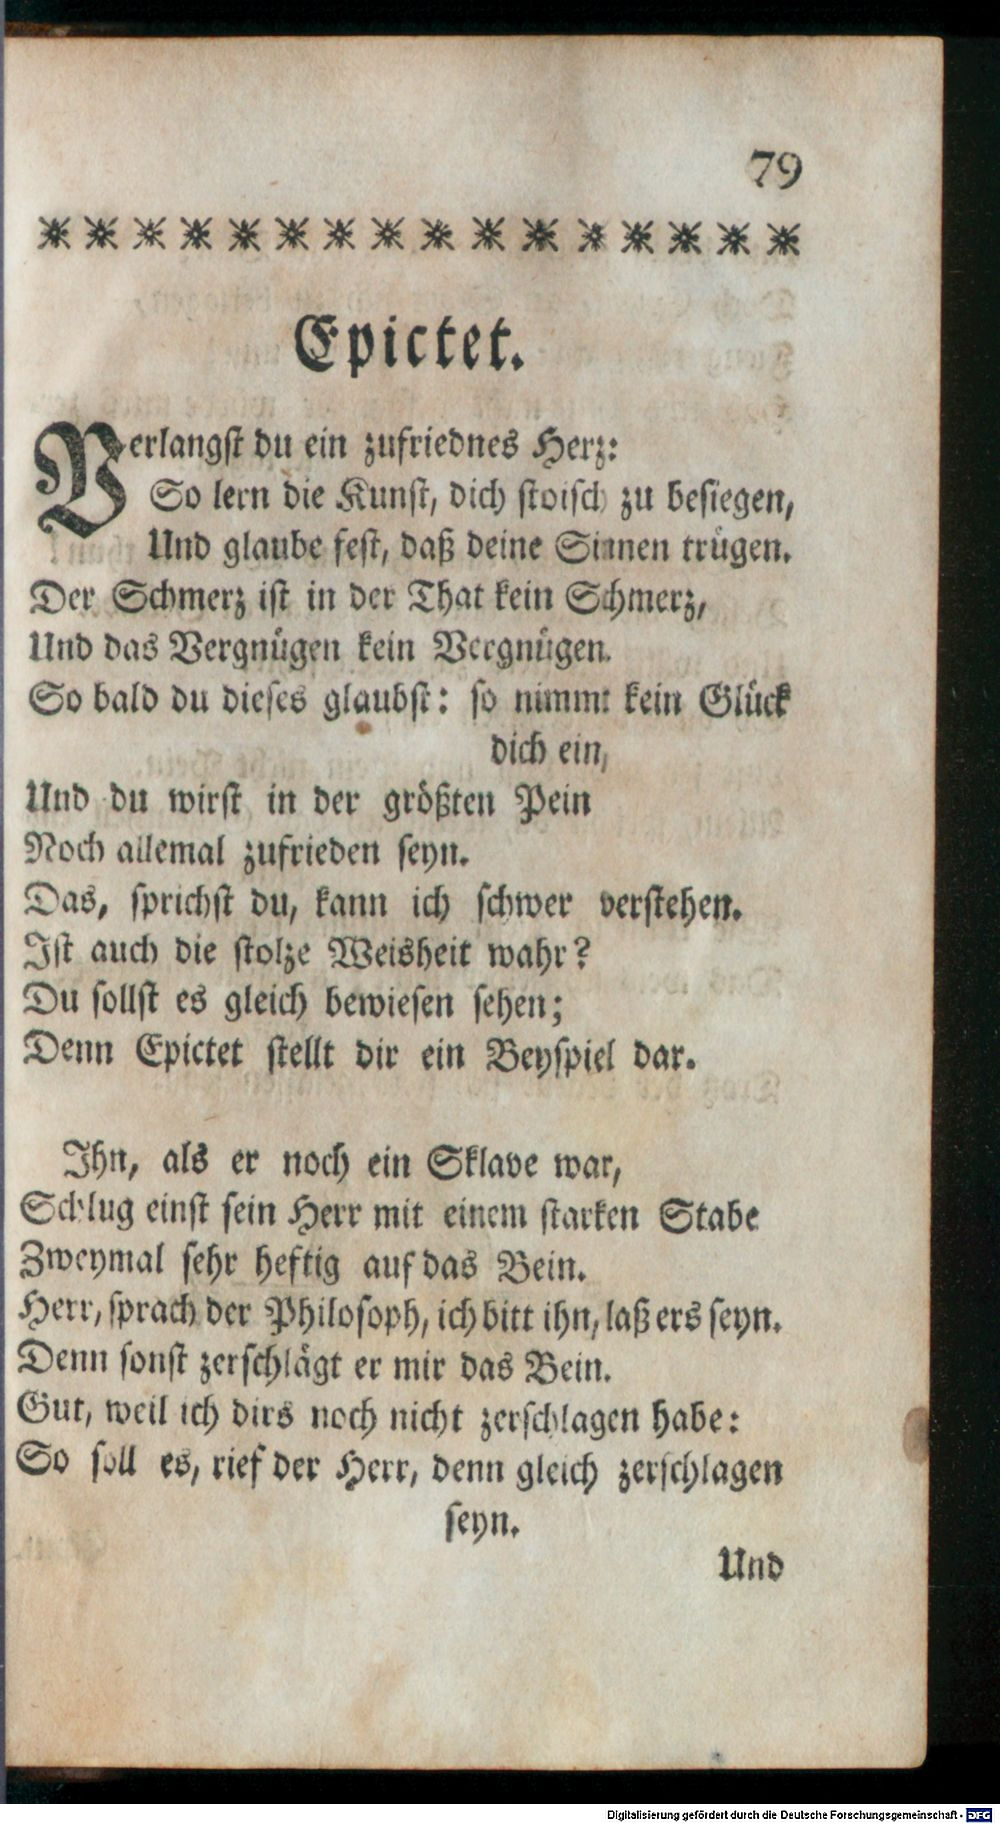 79
Epictet.
Verlangst du ein zufriednes Herz:
So lern die Kunst, dich stoisch zu besiegen,
Und glaube fest, daß deine Sinnen trügen.
Der Schmerz ist in der That kein Schmerz,
Und das Vergnügen kein Vergnügen.
So bald du dieses glaubst: so nimmt kein Glück
dich ein,
Und du wirst in der größten Pein
Noch allemal zufrieden seyn.
Das, sprichst du, kann ich schwer verstehen.
Ist auch die stolze Weisheit wahr?
Du sollst es gleich bewiesen sehen;
Denn Epictet stellt dir ein Beyspiel dar.
Ihn, als er noch ein Sklave war,
Schlug einst sein Herr mit einem starken Stabe
Zweymal sehr heftig auf das Bein.
Herr, sprach der Philosoph, ich bitt ihn, laß ers seyn.
Denn sonst zerschlägt er mir das Bein.
Gut, weil ich dirs noch nicht zerschlagen habe:
So soll es, rief der Herr, denn gleich zerschlagen
seyn.
Und
Digitalisierung gefördert durch die Deutsche Forschungsgemeinschaft - DFG